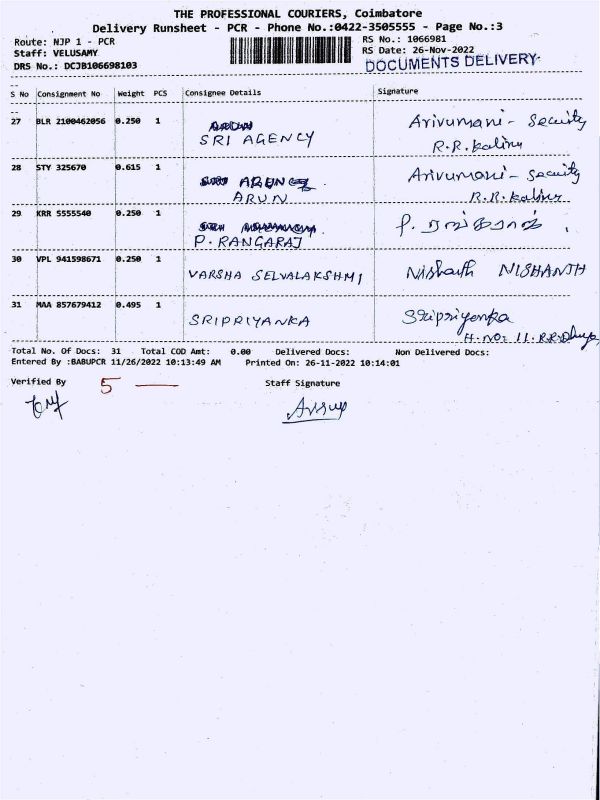 THE PROFESSIONAL COURIERS, Coimbatore
Delivery Runsheet - PCR - Phone No.:0422-3505555 - Page No.:3
Route: NJP 1 - PCR
Staff: VELUSAMY
DRS No.: DCJB106698103
RS No.: 1066981
RS Date: 26-Nov-2022
DOCUMENTS DELIVERY
S No Consignment No Weight PCS Consignee Details Signature
27 BLR 2100462056 0.250 1 SRI AGENCY Arivumani - Security
R.R.
28 STY 325670 0.615 1 ARUN Arivumani - Security
ARUN R.R.
29 KRR 5555540 0.250 1 P. RANGARAJ
30 VPL 941598671 0.250 1 VARSHA SELVALAKSHMI Nishanth NISHANTH
31 MAA 857679412 0.495 1 SRIPRIYANKA Sripriyanka
H.NO: 11.
Total No. Of Docs: 31 Total COD Amt: 0.00 Delivered Docs: Non Delivered Docs:
Entered By :BABUPCR 11/26/2022 10:13:49 AM Printed On: 26-11-2022 10:14:01
Verified By 5 Staff Signature